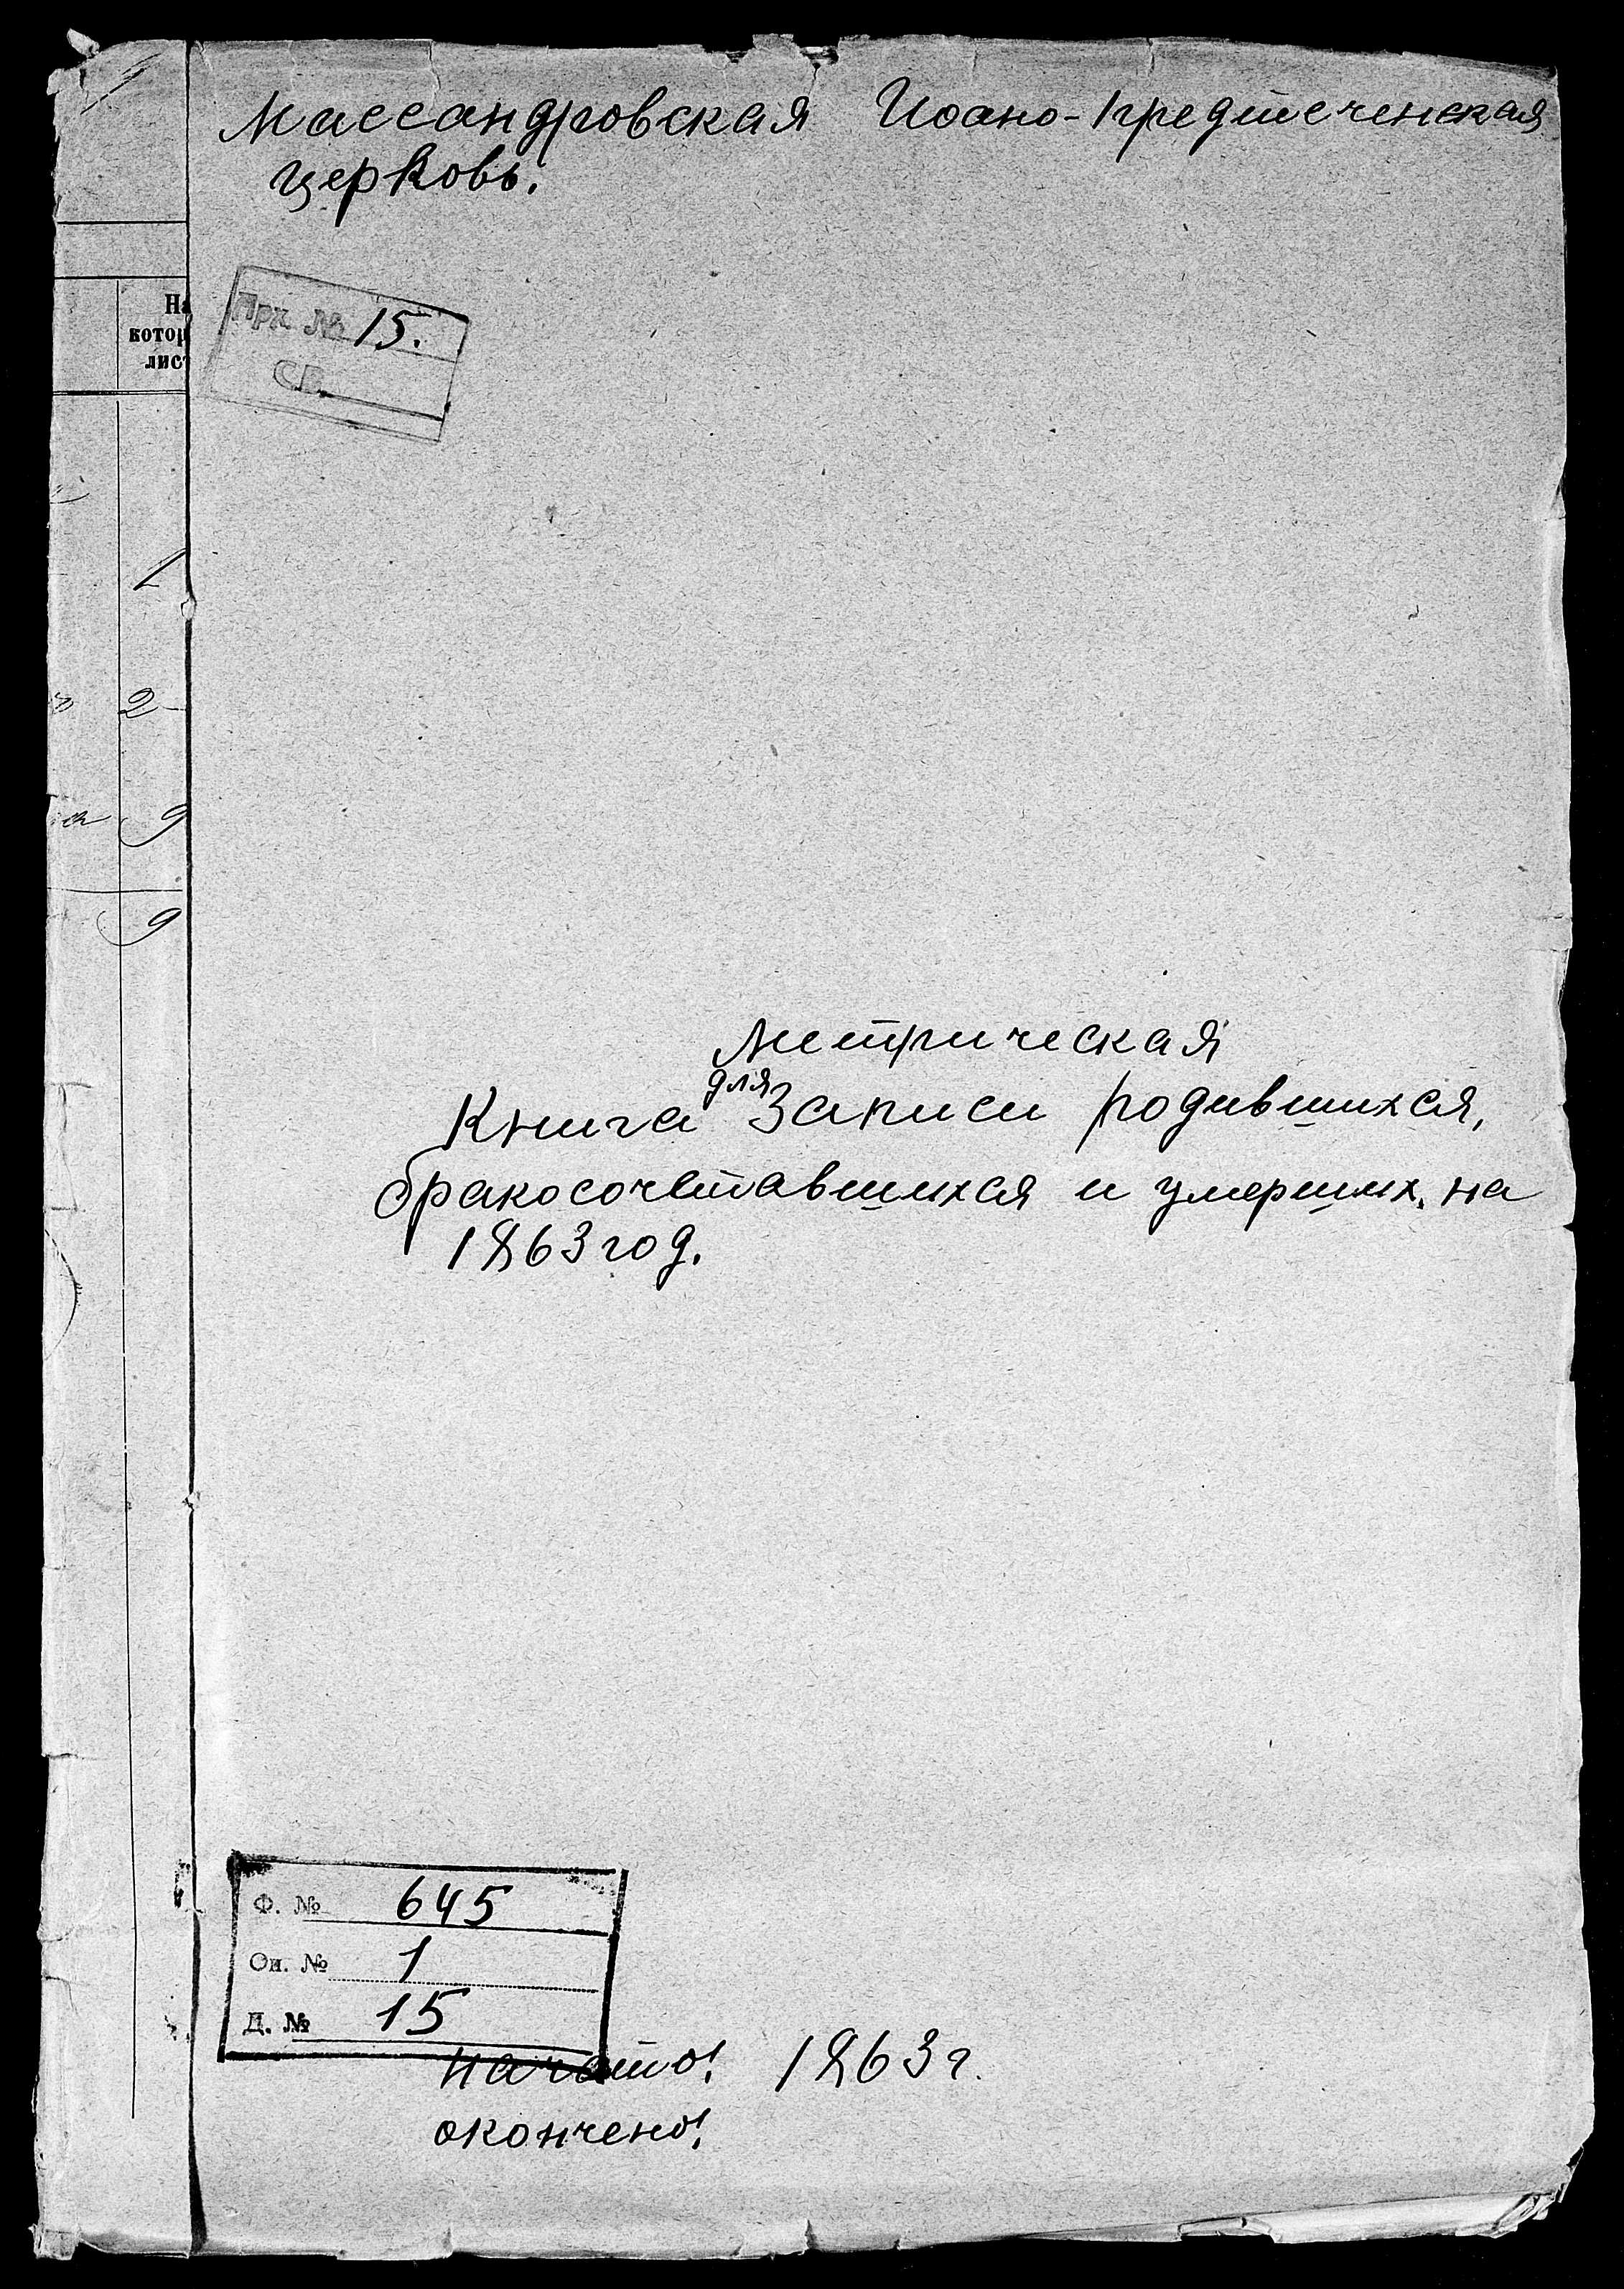 Массандровская Иоано-Предтеченская
церковь.
На
котор
лист
Арх №15.
СВ.
1
2
9
9
Метрическая
для
Книга записи родившихся,
бракосочетавшихся и умерших на
1863 год.
Ф. № 645
Оп. № 1
Д. № 15
начато: 1863 г.
окончено: